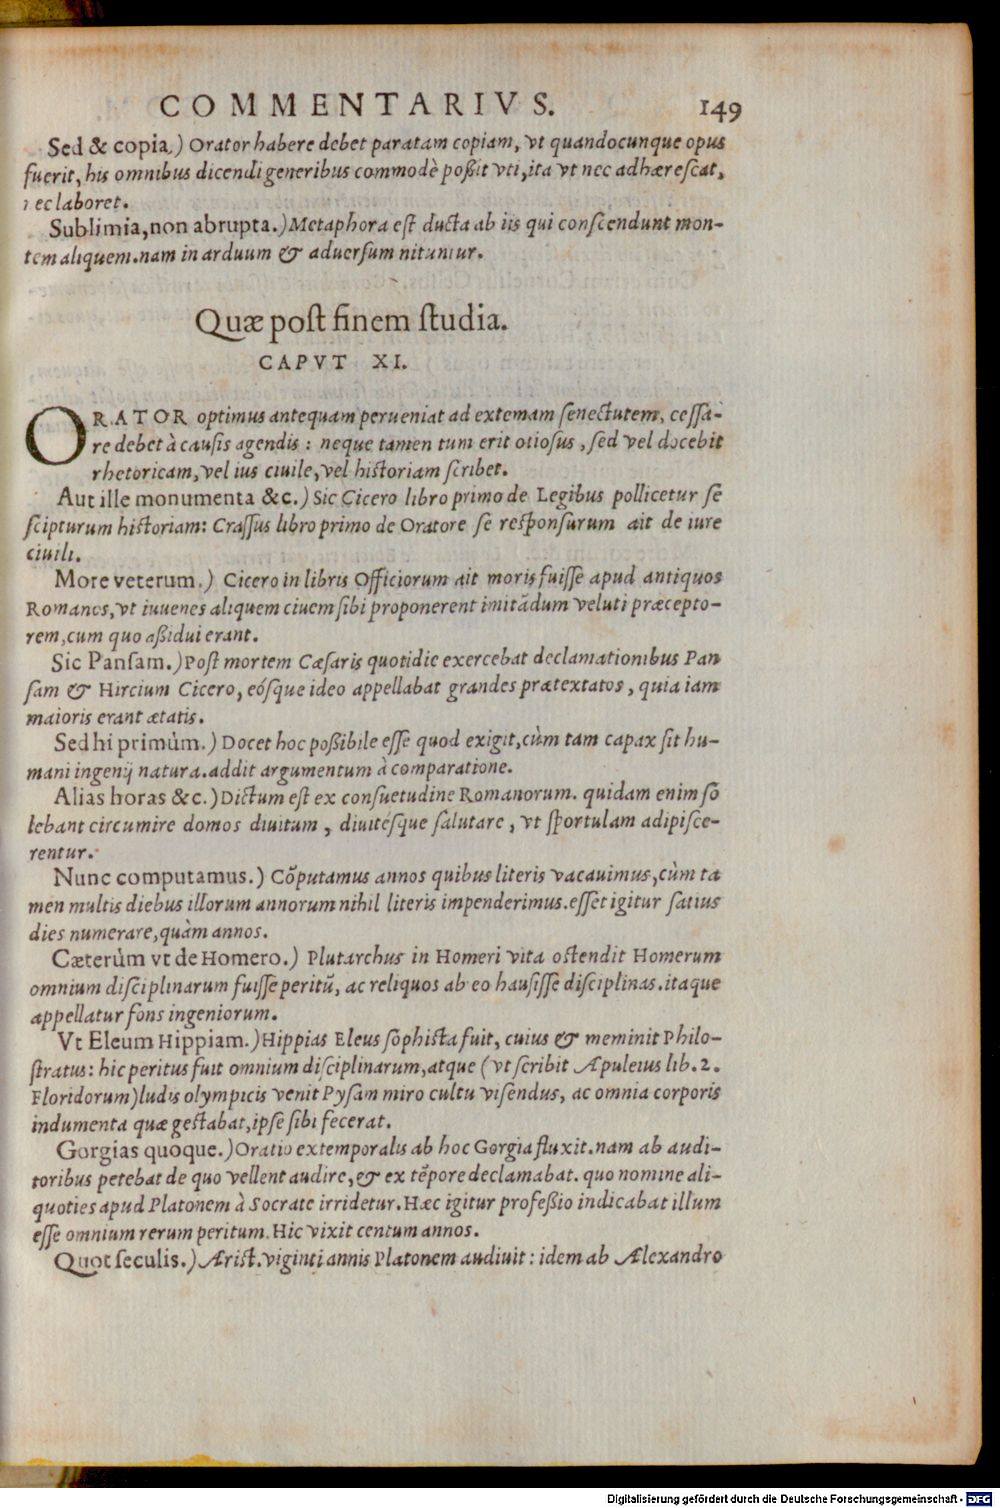 COMMENTARIVS. 149
Sed & copia.) Orator habere debet paratam copiam, vt quandocunque opus
fuerit, his omnibus dicendi generibus commodè poßit vti, ita vt nec adhærescat,
nec laboret.
Sublimia, non abrupta.) Metaphora est ducta ab iis qui conscendunt mon-
tem aliquem. nam in arduum & aduersum nituntur.
Quæ post finem studia.
CAPVT XI.
ORATOR optimus antequam perueniat ad extemam senectutem, cessa-
re debet à causis agendis: neque tamen tum erit otiosus, sed vel docebit
rhetoricam, vel ius ciuile, vel historiam scribet.
Aut ille monumenta &c.) Sic Cicero libro primo de Legibus pollicetur se
scipturum historiam: Crassus libro primo de Oratore se responsurum ait de iure
ciuili.
More veterum.) Cicero in libris Officiorum ait moris fuisse apud antiquos
Romanos, vt iuuenes aliquem ciuem sibi proponerent imitãdum veluti præcepto-
rem, cum quo aßidui erant.
Sic Pansam.) Post mortem Cæsaris quotidie exercebat declamationibus Pan
sam & Hircium Cicero, eósque ideo appellabat grandes prætextatos, quia iam
maioris erant ætatis.
Sed hi primùm.) Docet hoc poßibile esse quod exigit, cùm tam capax sit hu-
mani ingenij natura. addit argumentum à comparatione.
Alias horas &c.) Dictum est ex consuetudine Romanorum. quidam enim so
lebant circumire domos diuitum, diuitésque salutare, vt sportulam adipisce-
rentur.
Nunc computamus.) Cõputamus annos quibus literis vacauimus, cùm ta
men multis diebus illorum annorum nihil literis impenderimus. esset igitur satius
dies numerare, quàm annos.
Cæterùm vt de Homero.) Plutarchus in Homeri vita ostendit Homerum
omnium disciplinarum fuisse peritũ, ac reliquos ab eo hausisse disciplinas. itaque
appellatur fons ingeniorum.
Vt Eleum Hippiam.) Hippias Eleus sophista fuit, cuius & meminit Philo-
stratus: hic peritus fuit omnium disciplinarum, atque (vt scribit Apuleius lib. 2.
Floridorum) ludis olympicis venit Pysam miro cultu visendus, ac omnia corporis
indumenta quæ gestabat, ipse sibi fecerat.
Gorgias quoque.) Oratio extemporalis ab hoc Gorgia fluxit. nam ab audi-
toribus petebat de quo vellent audire, & ex tẽpore declamabat. quo nomine ali-
quoties apud Platonem à Socrate irridetur. Hæc igitur profeßio indicabat illum
esse omnium rerum peritum. Hic vixit centum annos.
Quot seculis.) Arist. viginti annis Platonem audiuit: idem ab Alexandro
Digitalisierung gefördert durch die Deutsche Forschungsgemeinschaft - DFG